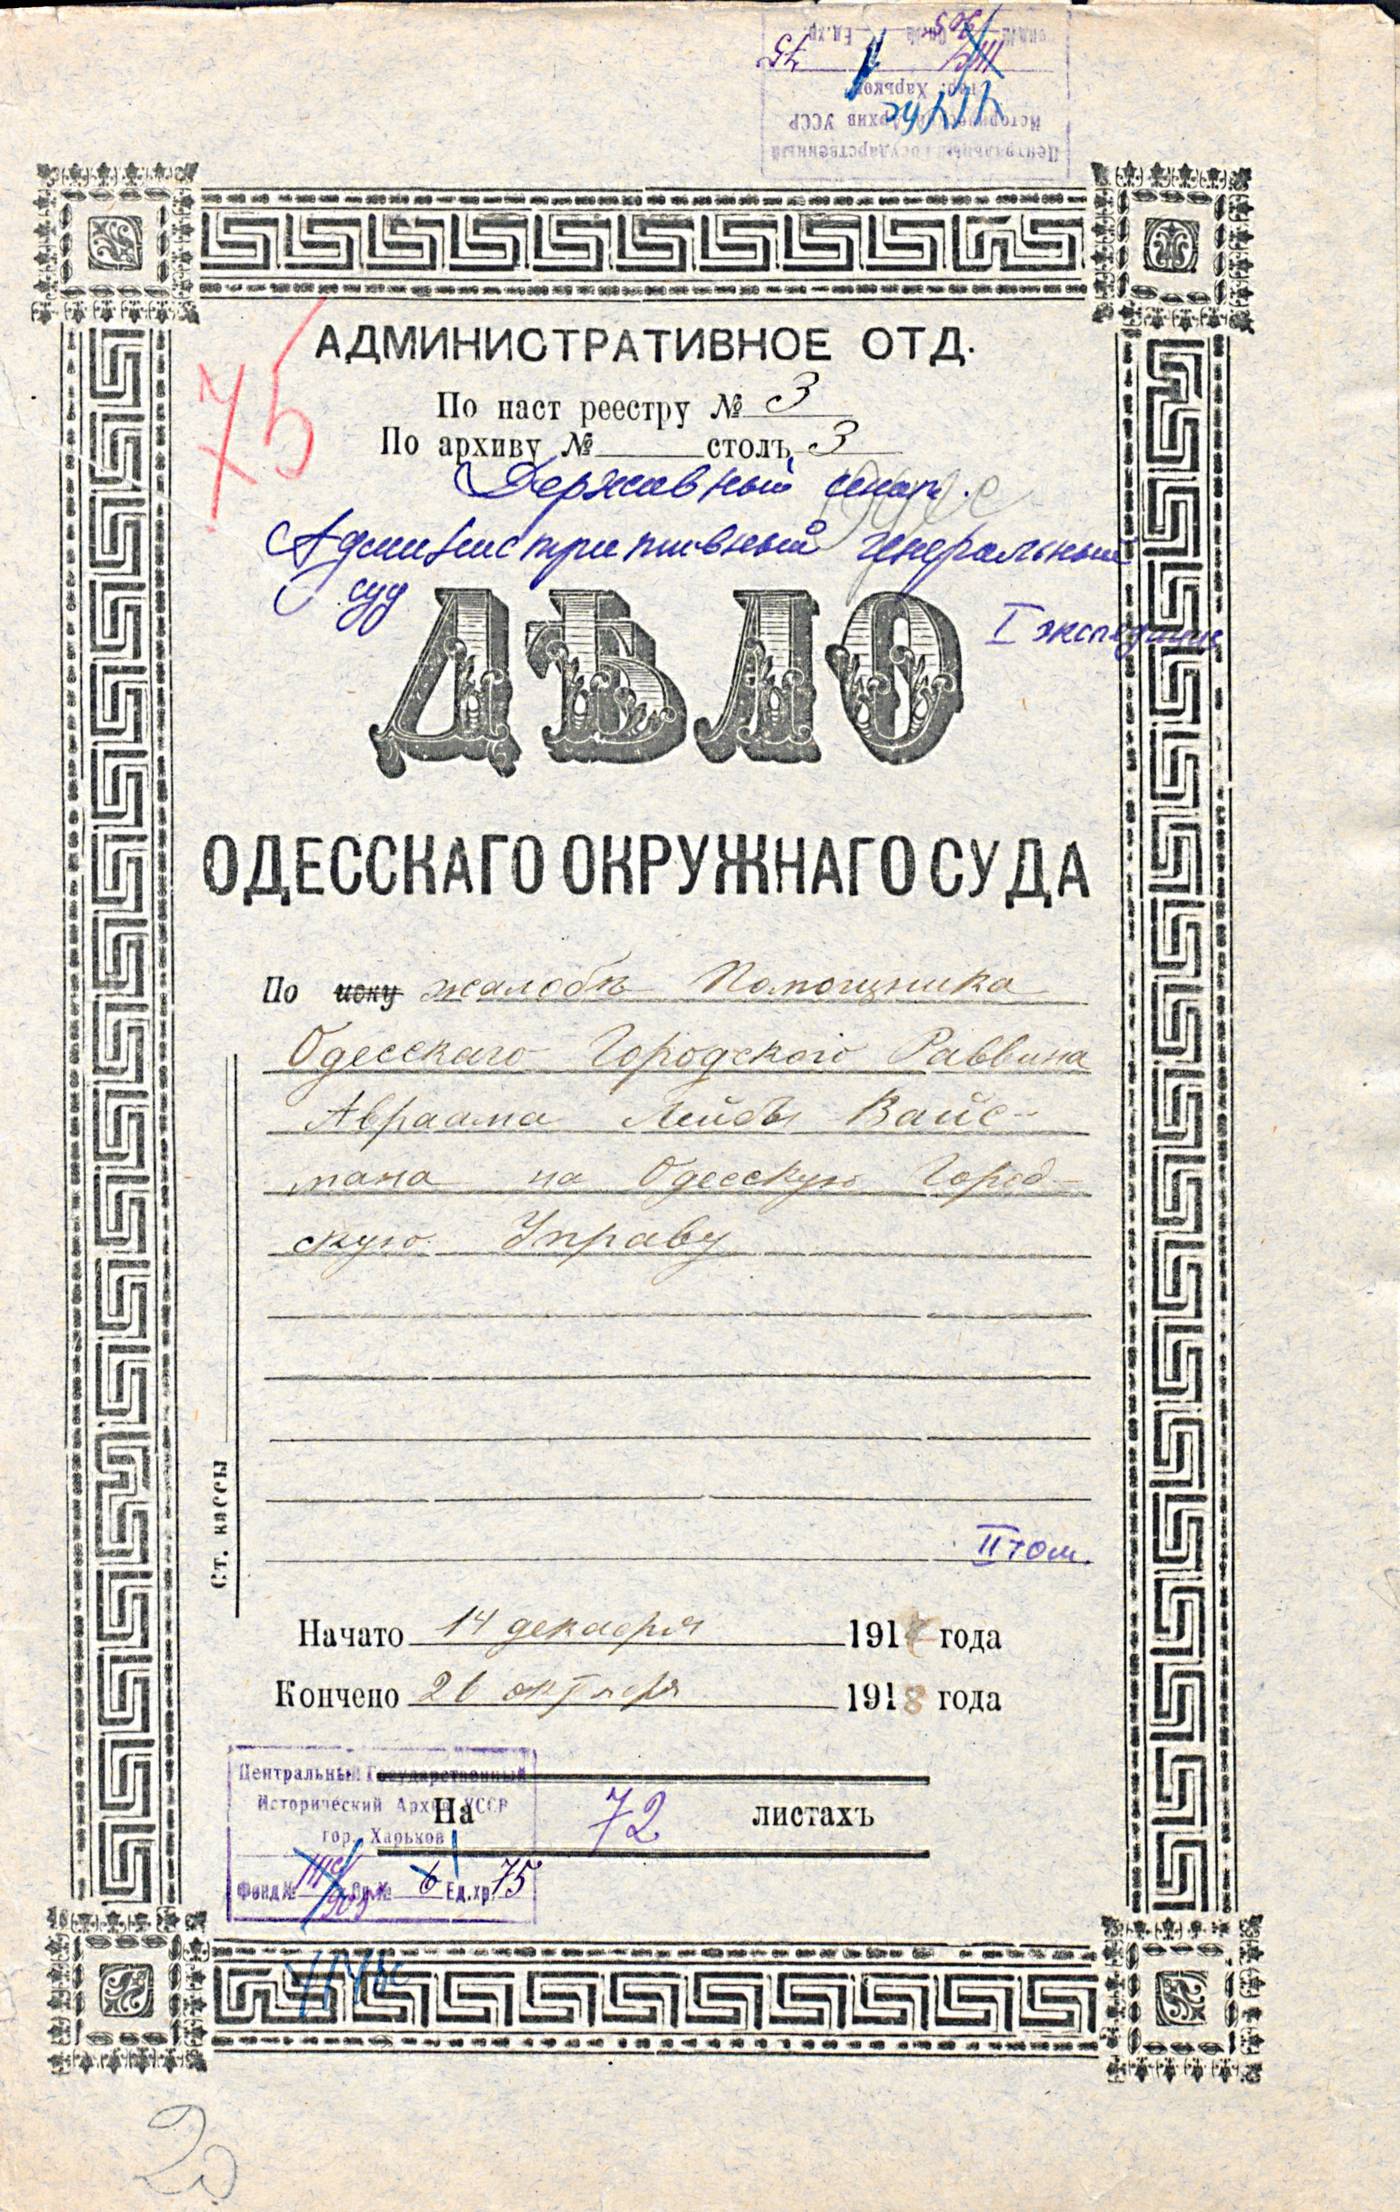 Центральный Государственный
Исторический Архив УССР
гор. Харьков
Фонд № Оп. № Ед.хр. 75
75
АДМИНИСТРАТИВНОЕ ОТД.
По наст реестру № 3
По архиву № столъ 3
Державный сенат.
Административный генеральный
суд
I экспедиция
ДѢЛО
ОДЕССКАГО ОКРУЖНАГО СУДА
По иску жалобѣ Помощника
Одесскаго Городского Раввина
Авраама Лейбы Вайс-
мана на Одесскую Город-
скую Управу
Ст. кассы
II том.
Начато 14 декабря 1917 года
Кончено 26 октября 1918 года
На 72 листахъ
Центральный Государственный
Исторический Архив УССР
гор. Харьков
Фонд № Оп. № 6 Ед.хр. 75